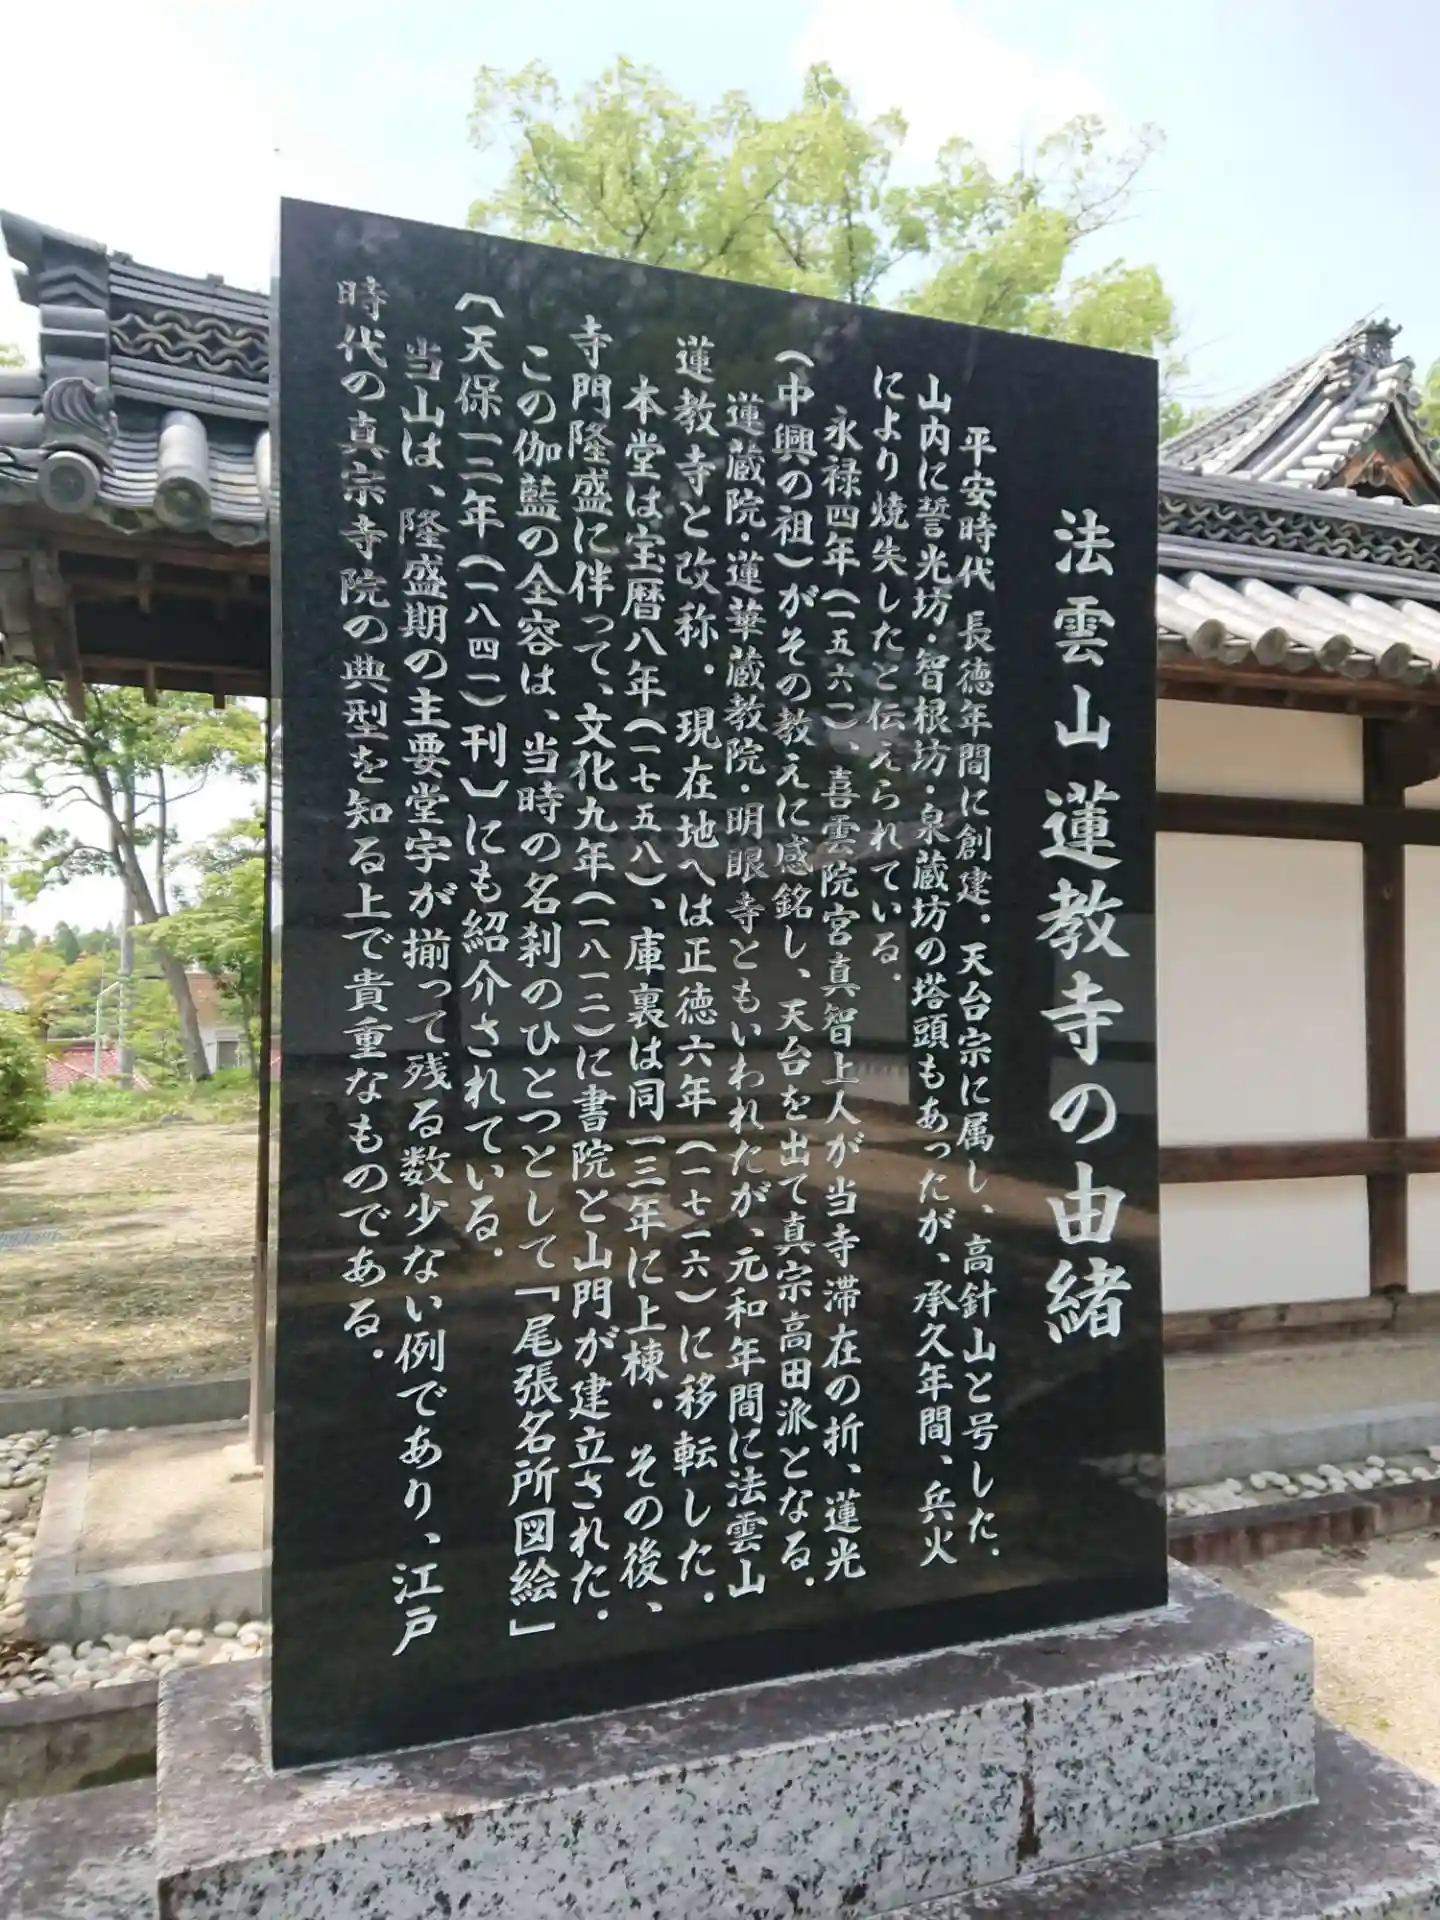 法雲山 蓮教寺の由緒
平安時代 長徳年間に創建．天台宗に属し、高針山と号した．
山内に誓光坊・智根坊・泉蔵坊の塔頭もあったが、承久年間、兵火
により焼失したと伝えられている．
永禄四年（一五六一）、喜雲院宮真智上人が当寺滞在の折、蓮光
（中興の祖）がその教えに感銘し、天台を出て真宗高田派となる．
蓮蔵院・蓮華蔵教院・明眼寺ともいわれたが、元和年間に法雲山
蓮教寺と改称．現在地へは正徳六年（一七一六）に移転した．
本堂は宝暦八年（一七五八）、庫裏は同一三年に上棟．その後、
寺門隆盛に伴って、文化九年（一八一二）に書院と山門が建立された．
この伽藍の全容は、当時の名刹のひとつとして「尾張名所図絵」
〔天保一二年（一八四一）刊〕にも紹介されている．
当山は、隆盛期の主要堂宇が揃って残る数少ない例であり、江戸
時代の真宗寺院の典型を知る上で貴重なものである．